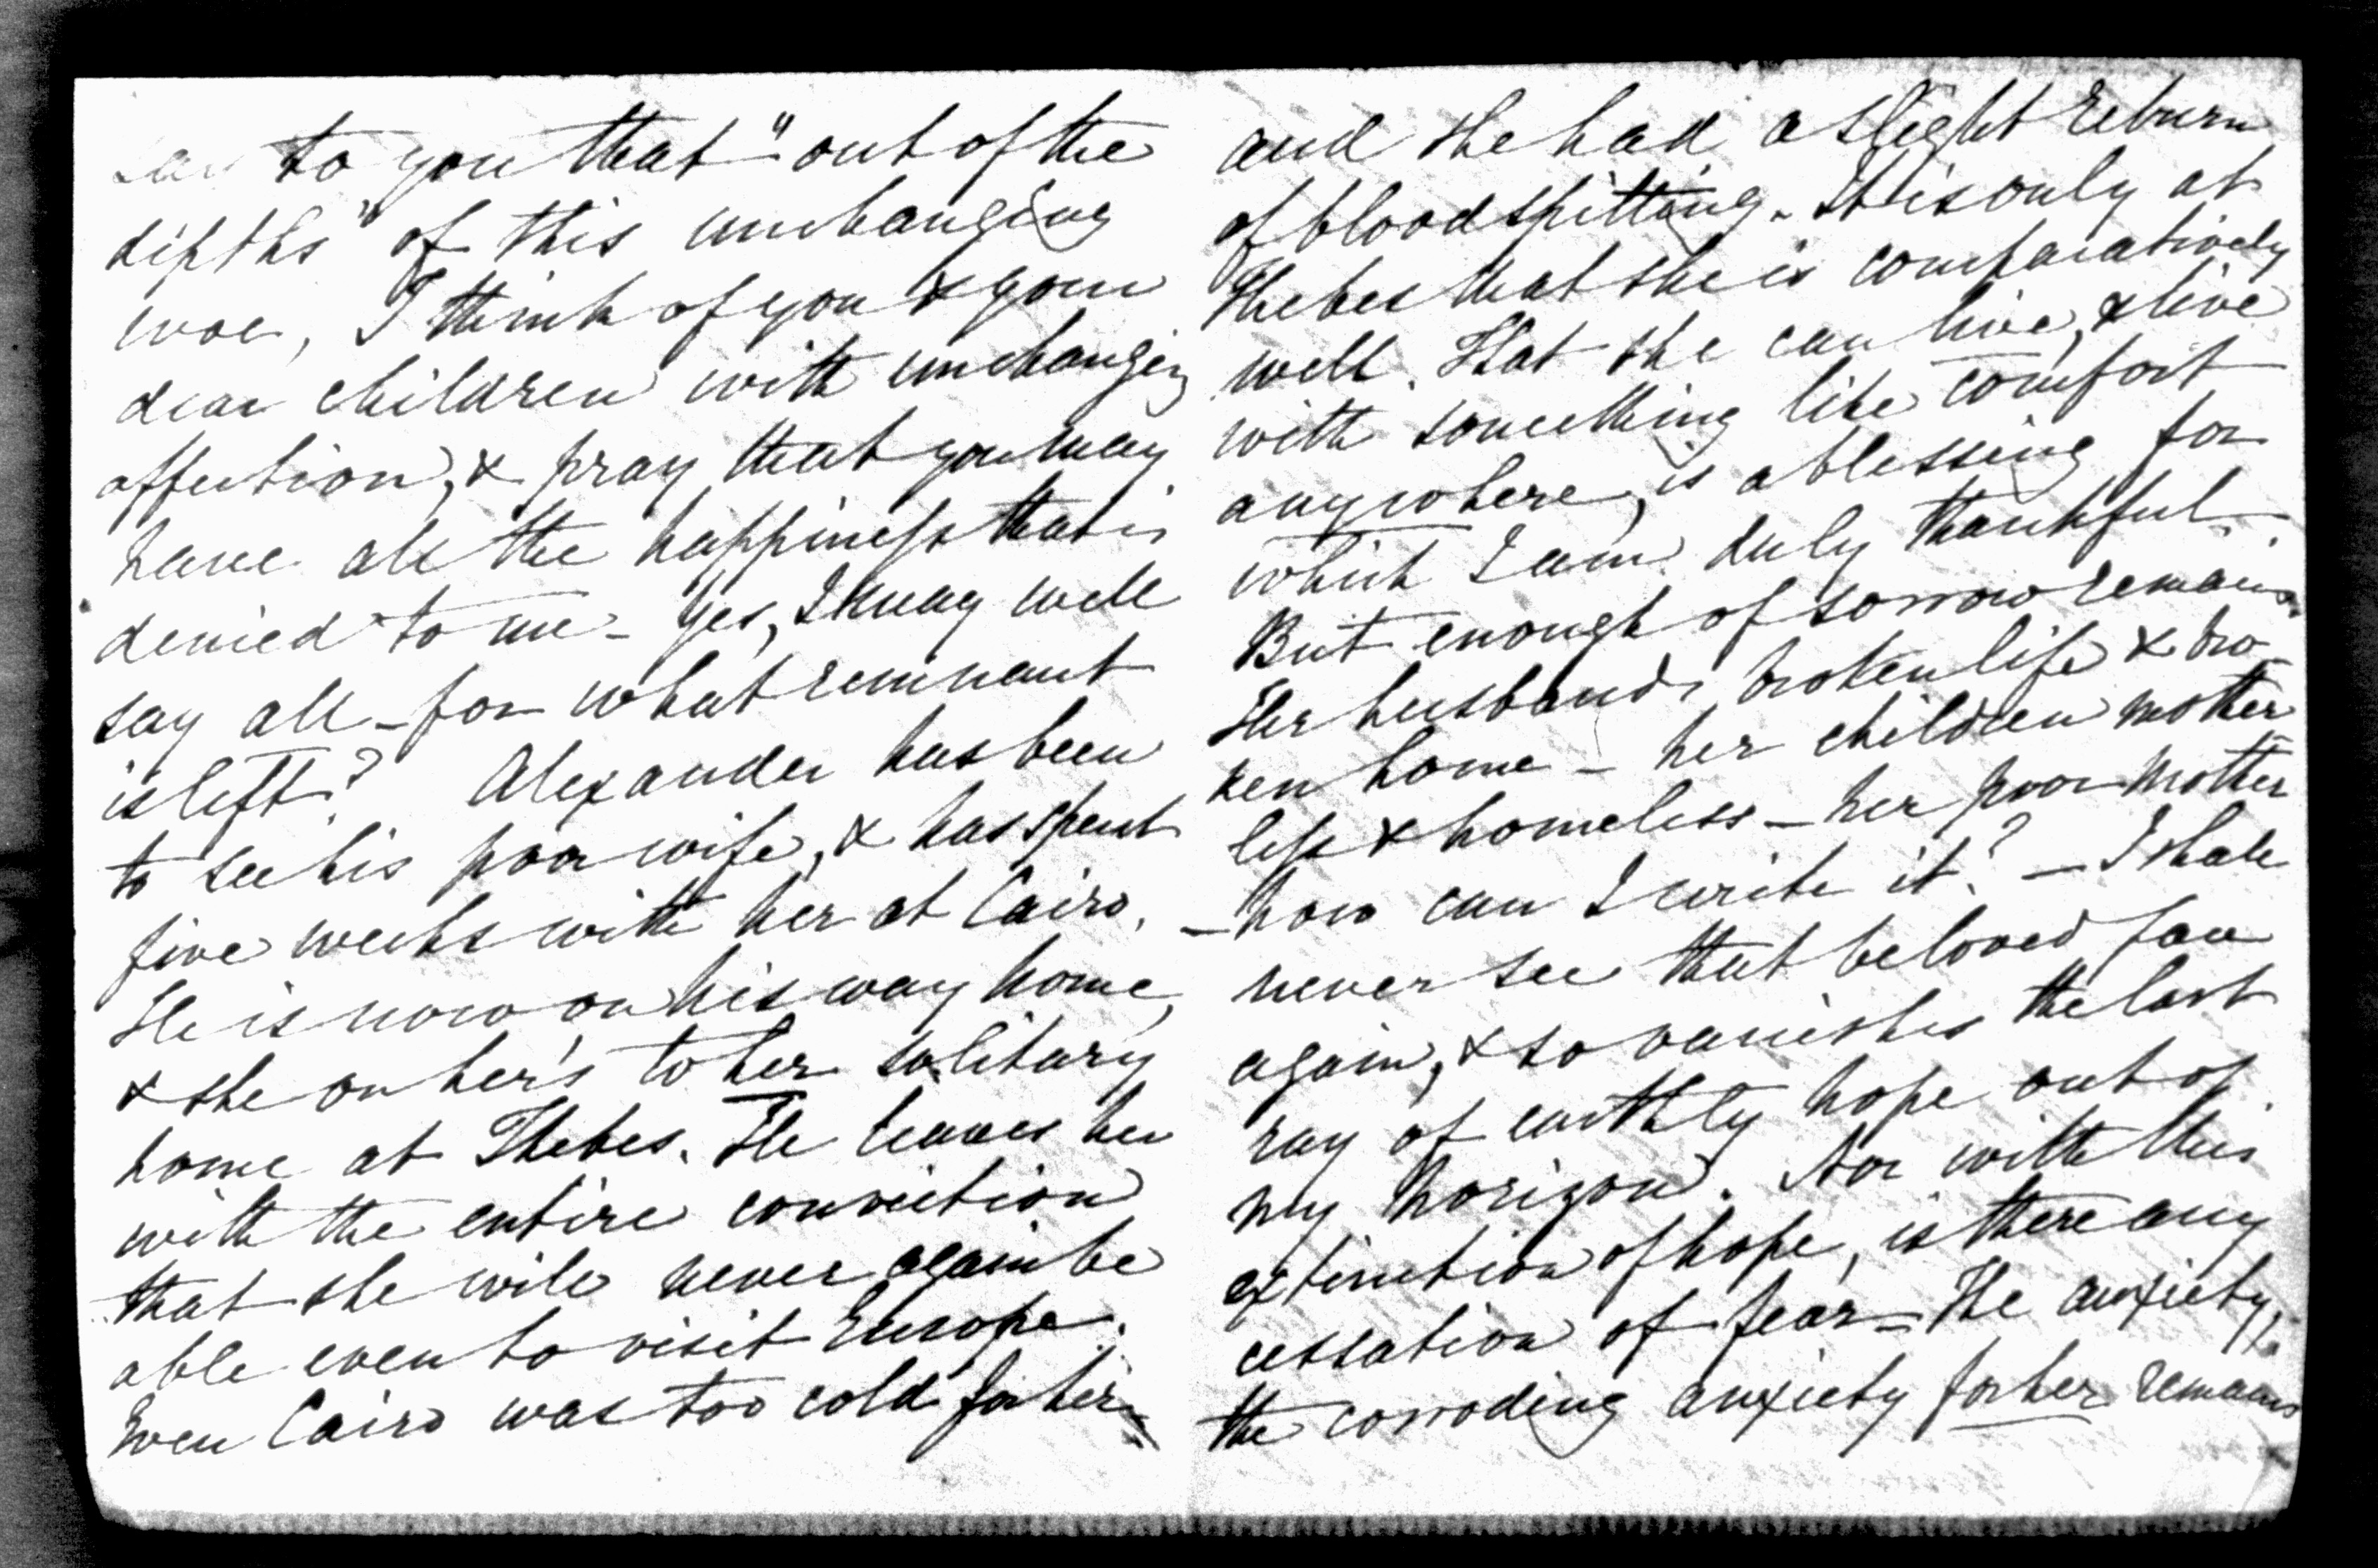 to you that "out of the
depths" of this unchanging
woe, I think of you & your
dear children with unchanging
affection, & pray that you may
have all the happiness that is
denied to me – Yes, I may well
say all – for what remnant
is left? Alexander has been
to see his poor wife, & has spent
five weeks with her at Cairo.
He is now on his way home,
& she on her's to her solitary
home at Thebes. He leaves her
with the entire conviction
that she will never again be
able even to visit Europe.
Even Cairo was too cold for her –
and she had a slight return
of bloodspitting. It is only at
Thebes that she is comparatively
well. That she can live, & live
with something like comfort
anywhere, is a blessing for
which I am duly thankful.
But enough of sorrow remains.
Her husband's broken life & bro-
ken home – her children mother-
less & homeless – her poor mother
– how can I write it? – I shall
never see that beloved face
again, & so vanishes the last
ray of earthly hope out of
my horizon. Nor with this
extinction of hope, is there any
cessation of fear – The anxiety,
the corroding anxiety for her remains